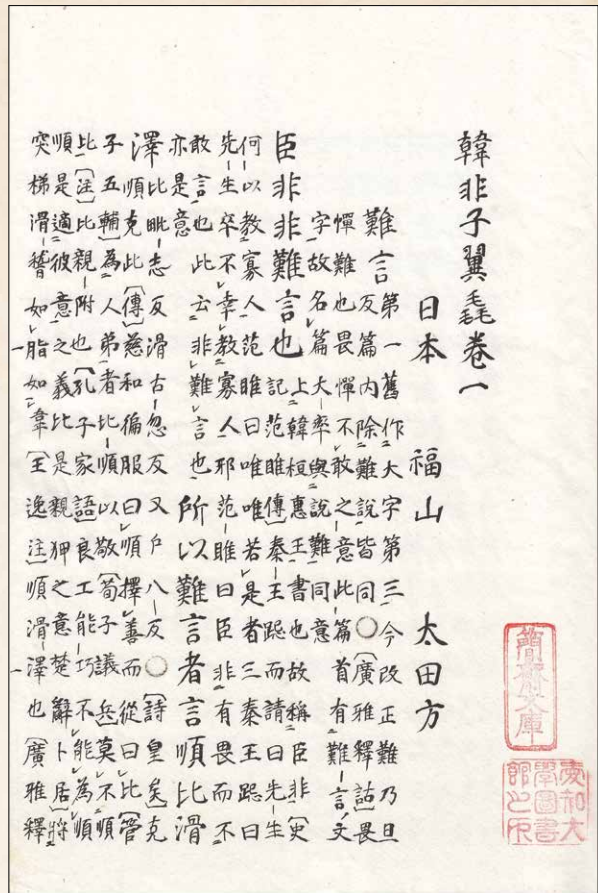 韓非子翼毳卷一
日本 福山 太田方
難言第一舊作大字第三今改正難乃旦
反篇内除難說皆同○廣雅釋詁畏
憚難也畏憚不敢之意此篇首有難言文
字故名篇大率與說難同意
臣非非難言也上韓桓惠王書也故稱臣非史
記范雎傳秦王跽而請曰先生
何以教寡人范雎曰唯唯若是者三秦王跽曰
先生卒不幸教寡人邪范雎曰臣非有畏而不
敢言也此云非難言也
亦是意
所以難言者言順比滑
澤比毗志反滑古忽反又戶八反○詩皇矣克
順克比傳慈和徧服曰順擇善而從曰比管
子五輔為人弟者比順以敬荀子議兵莫不順
比注比親附也孔子家語良工能巧不能為順
順是適彼意之義比是親狎之意楚辭卜居將
突梯滑稽如脂如韋王逸注順滑澤也廣雅釋
簡齋文庫
愛知大
學圖書
館之印